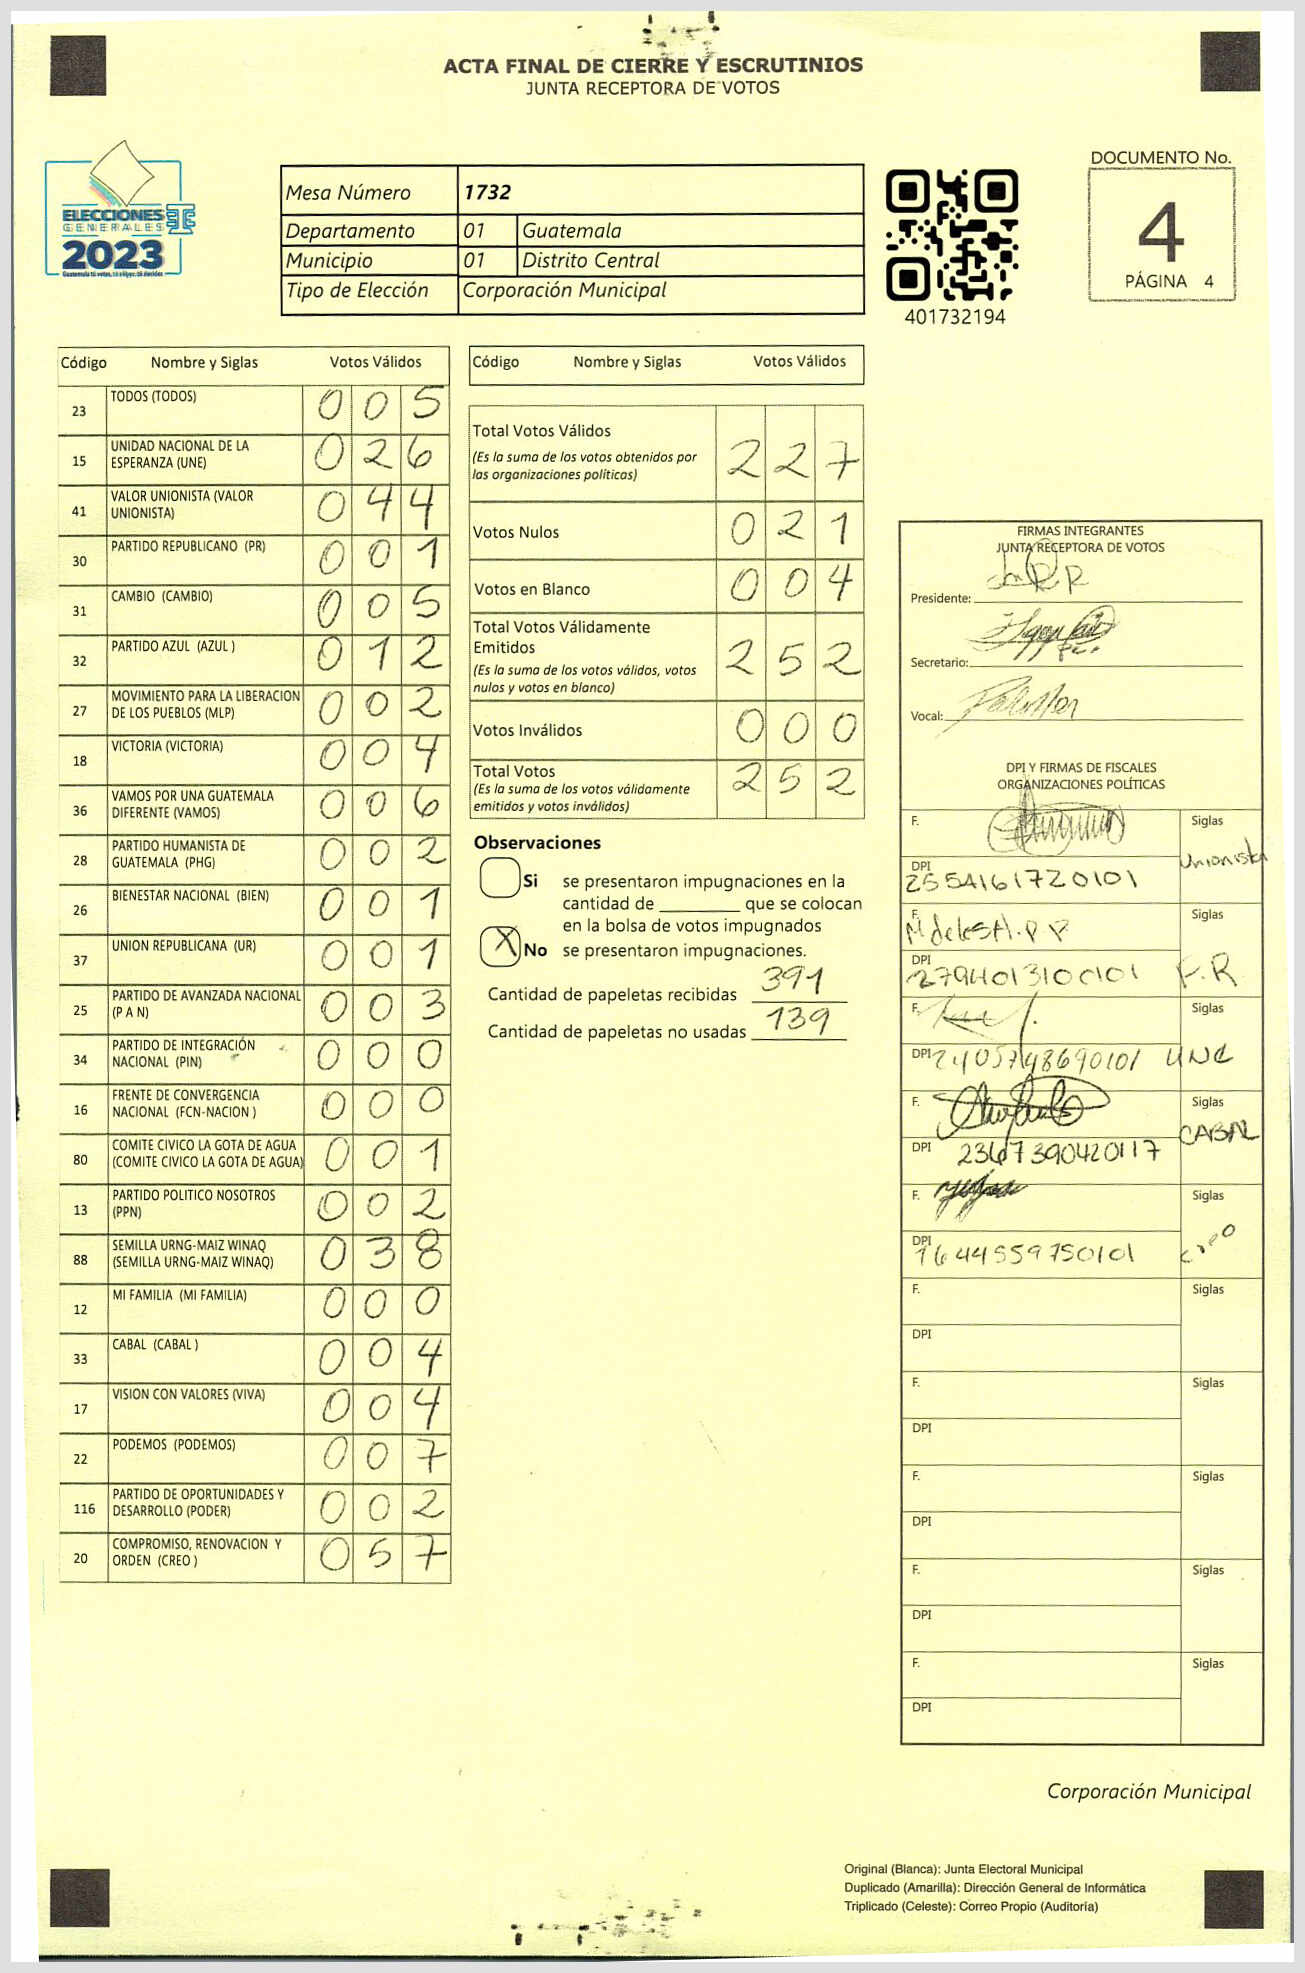 ACTA FINAL DE CIERRE Y ESCRUTINIOS
JUNTA RECEPTORA DE VOTOS
ELECCIONES
GENERALES
2023
Guatemala tú votas, tú eliges, tú decides
Mesa Número 1732
Departamento 01 Guatemala
Municipio 01 Distrito Central
Tipo de Elección Corporación Municipal
401732194
DOCUMENTO No.
4
PÁGINA 4
Código Nombre y Siglas Votos Válidos
23 TODOS (TODOS) 0 0 5
15 UNIDAD NACIONAL DE LA
ESPERANZA (UNE) 0 2 6
41 VALOR UNIONISTA (VALOR
UNIONISTA) 0 4 4
30 PARTIDO REPUBLICANO (PR) 0 0 1
31 CAMBIO (CAMBIO) 0 0 5
32 PARTIDO AZUL (AZUL ) 0 1 2
27 MOVIMIENTO PARA LA LIBERACION
DE LOS PUEBLOS (MLP) 0 0 2
18 VICTORIA (VICTORIA) 0 0 4
36 VAMOS POR UNA GUATEMALA
DIFERENTE (VAMOS) 0 0 6
28 PARTIDO HUMANISTA DE
GUATEMALA (PHG) 0 0 2
26 BIENESTAR NACIONAL (BIEN) 0 0 1
37 UNION REPUBLICANA (UR) 0 0 1
25 PARTIDO DE AVANZADA NACIONAL
(P A N) 0 0 3
34 PARTIDO DE INTEGRACIÓN
NACIONAL (PIN) 0 0 0
16 FRENTE DE CONVERGENCIA
NACIONAL (FCN-NACION ) 0 0 0
80 COMITE CIVICO LA GOTA DE AGUA
(COMITE CIVICO LA GOTA DE AGUA) 0 0 1
13 PARTIDO POLITICO NOSOTROS
(PPN) 0 0 2
88 SEMILLA URNG-MAIZ WINAQ
(SEMILLA URNG-MAIZ WINAQ) 0 3 8
12 MI FAMILIA (MI FAMILIA) 0 0 0
33 CABAL (CABAL ) 0 0 4
17 VISION CON VALORES (VIVA) 0 0 4
22 PODEMOS (PODEMOS) 0 0 7
116 PARTIDO DE OPORTUNIDADES Y
DESARROLLO (PODER) 0 0 2
20 COMPROMISO, RENOVACION Y
ORDEN (CREO ) 0 5 7
Código Nombre y Siglas Votos Válidos
Total Votos Válidos
(Es la suma de los votos obtenidos por
las organizaciones políticas) 2 2 7
Votos Nulos 0 2 1
Votos en Blanco 0 0 4
Total Votos Válidamente
Emitidos
(Es la suma de los votos válidos, votos
nulos y votos en blanco) 2 5 2
Votos Inválidos 0 0 0
Total Votos
(Es la suma de los votos válidamente
emitidos y votos inválidos) 2 5 2
Observaciones
Si se presentaron impugnaciones en la
cantidad de ________ que se colocan
en la bolsa de votos impugnados
X No se presentaron impugnaciones.
Cantidad de papeletas recibidas 391
Cantidad de papeletas no usadas 139
FIRMAS INTEGRANTES
JUNTA RECEPTORA DE VOTOS
Presidente:
Secretario:
Vocal:
DPI Y FIRMAS DE FISCALES
ORGANIZACIONES POLÍTICAS
F. Siglas
Unionista
DPI
2554161720101
F. Siglas
DPI
2794013100101 F.R
F. Siglas
DPI 2405748690101 UNE
F. Siglas
CABAL
DPI 2367390420117
F. Siglas
creo
DPI
1644559750101
F. Siglas
DPI
F. Siglas
DPI
F. Siglas
DPI
F. Siglas
DPI
F. Siglas
DPI
Corporación Municipal
Original (Blanca): Junta Electoral Municipal
Duplicado (Amarilla): Dirección General de Informática
Triplicado (Celeste): Correo Propio (Auditoría)